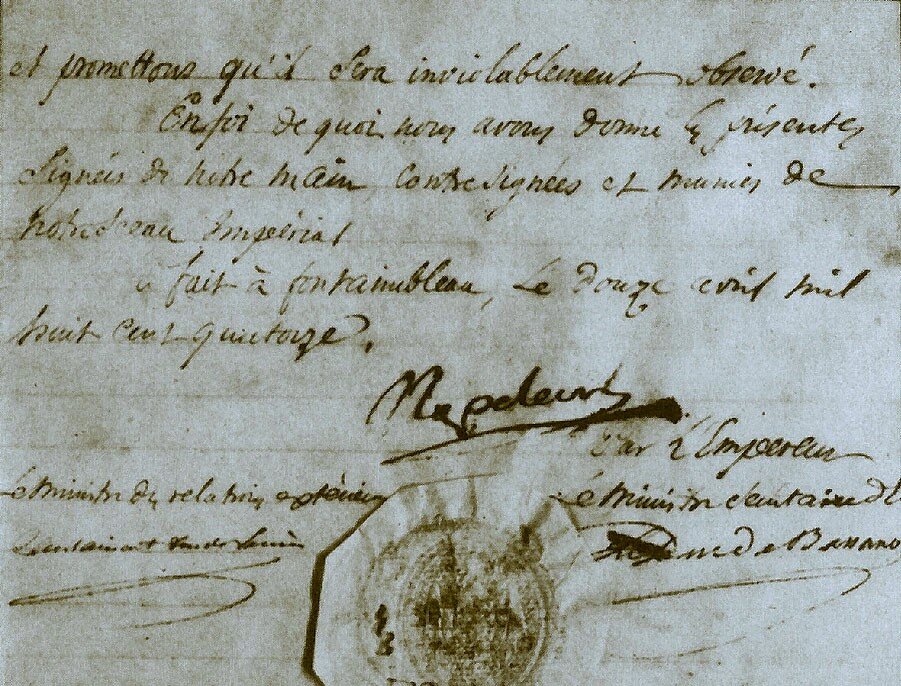 et promettons qu'il sera inviolablement observé.
En foi de quoi nous avons donné les présentes
Signées de nôtre main, contresignées et munies de
notre Sceau Impérial
fait à fontainebleau, Le douze avril mil
huit cent quatorze.
Napoleon
Par L'Empereur
Le Ministre des relations extérieures
Le Ministre Secretaire d'E
Le Duc de Bassano